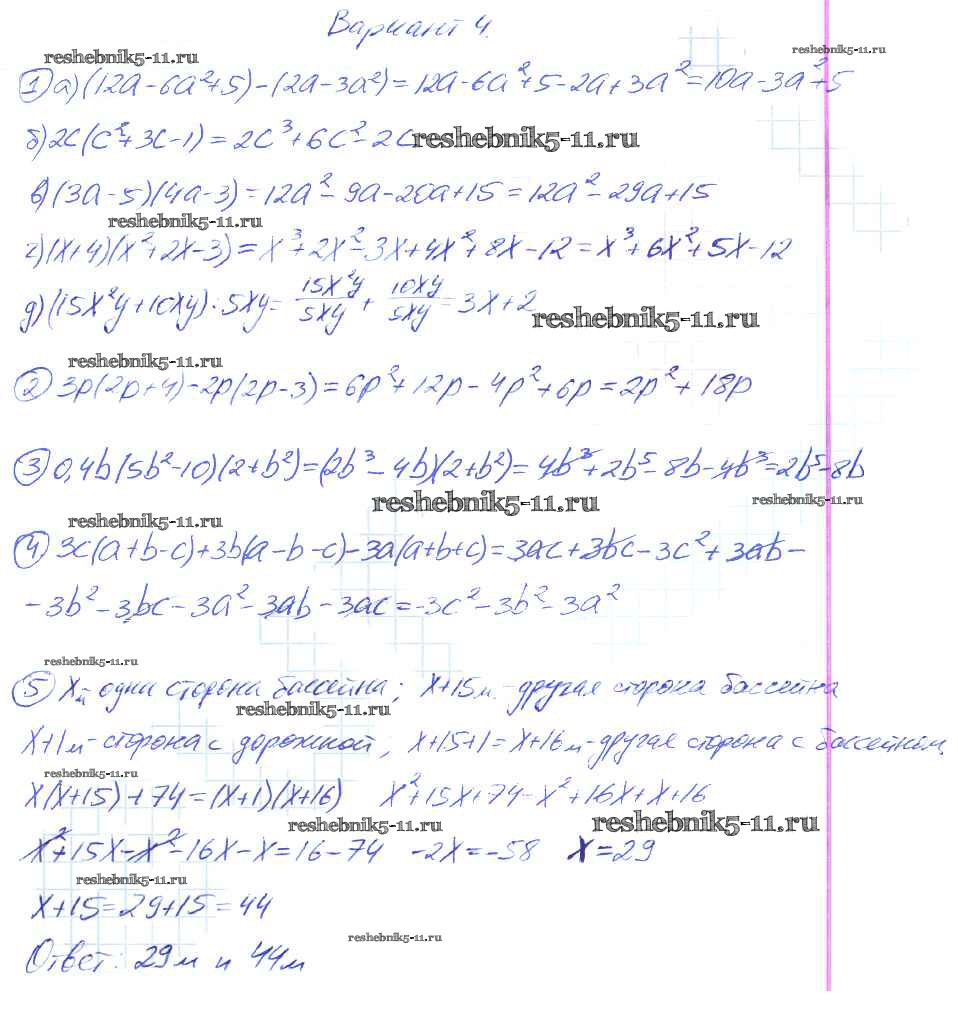 Вариант 4.
reshebnik5-11.ru
reshebnik5-11.ru
1 а) (12a-6a²+5)-(2a-3a²)=12a-6a²+5-2a+3a²=10a-3a²+5
б) 2c(c²+3c-1)=2c³+6c²-2c
reshebnik5-11.ru
в) (3a-5)(4a-3)=12a²-9a-20a+15=12a²-29a+15
reshebnik5-11.ru
г) (x+4)(x²+2x-3)=x³+2x²-3x+4x²+8x-12=x³+6x²+5x-12
д) (15x²y+10xy):5xy=15x²y/5xy+10xy/5xy=3x+2
reshebnik5-11.ru
reshebnik5-11.ru
2 3p(2p+4)-2p(2p-3)=6p²+12p-4p²+6p=2p²+18p
3 0,4b(5b²-10)(2+b²)=(2b³-4b)(2+b²)=4b³+2b⁵-8b-4b³=2b⁵-8b
reshebnik5-11.ru
reshebnik5-11.ru
reshebnik5-11.ru
4 3c(a+b-c)+3b(a-b-c)-3a(a+b+c)=3ac+3bc-3c²+3ab-
-3b²-3bc-3a²-3ab-3ac=-3c²-3b²-3a²
reshebnik5-11.ru
5 x м одна сторона бассейна; x+15 м - другая сторона бассейна
reshebnik5-11.ru
x+1 м - сторона с дорожкой; x+15+1=x+16 м - другая сторона с бассейном,
reshebnik5-11.ru
x(x+15)+74=(x+1)(x+16) x²+15x+74=x²+16x+x+16
reshebnik5-11.ru
reshebnik5-11.ru
x²+15x-x²-16x-x=16-74 -2x=-58 x=29
reshebnik5-11.ru
x+15=29+15=44
reshebnik5-11.ru
Ответ: 29м и 44м